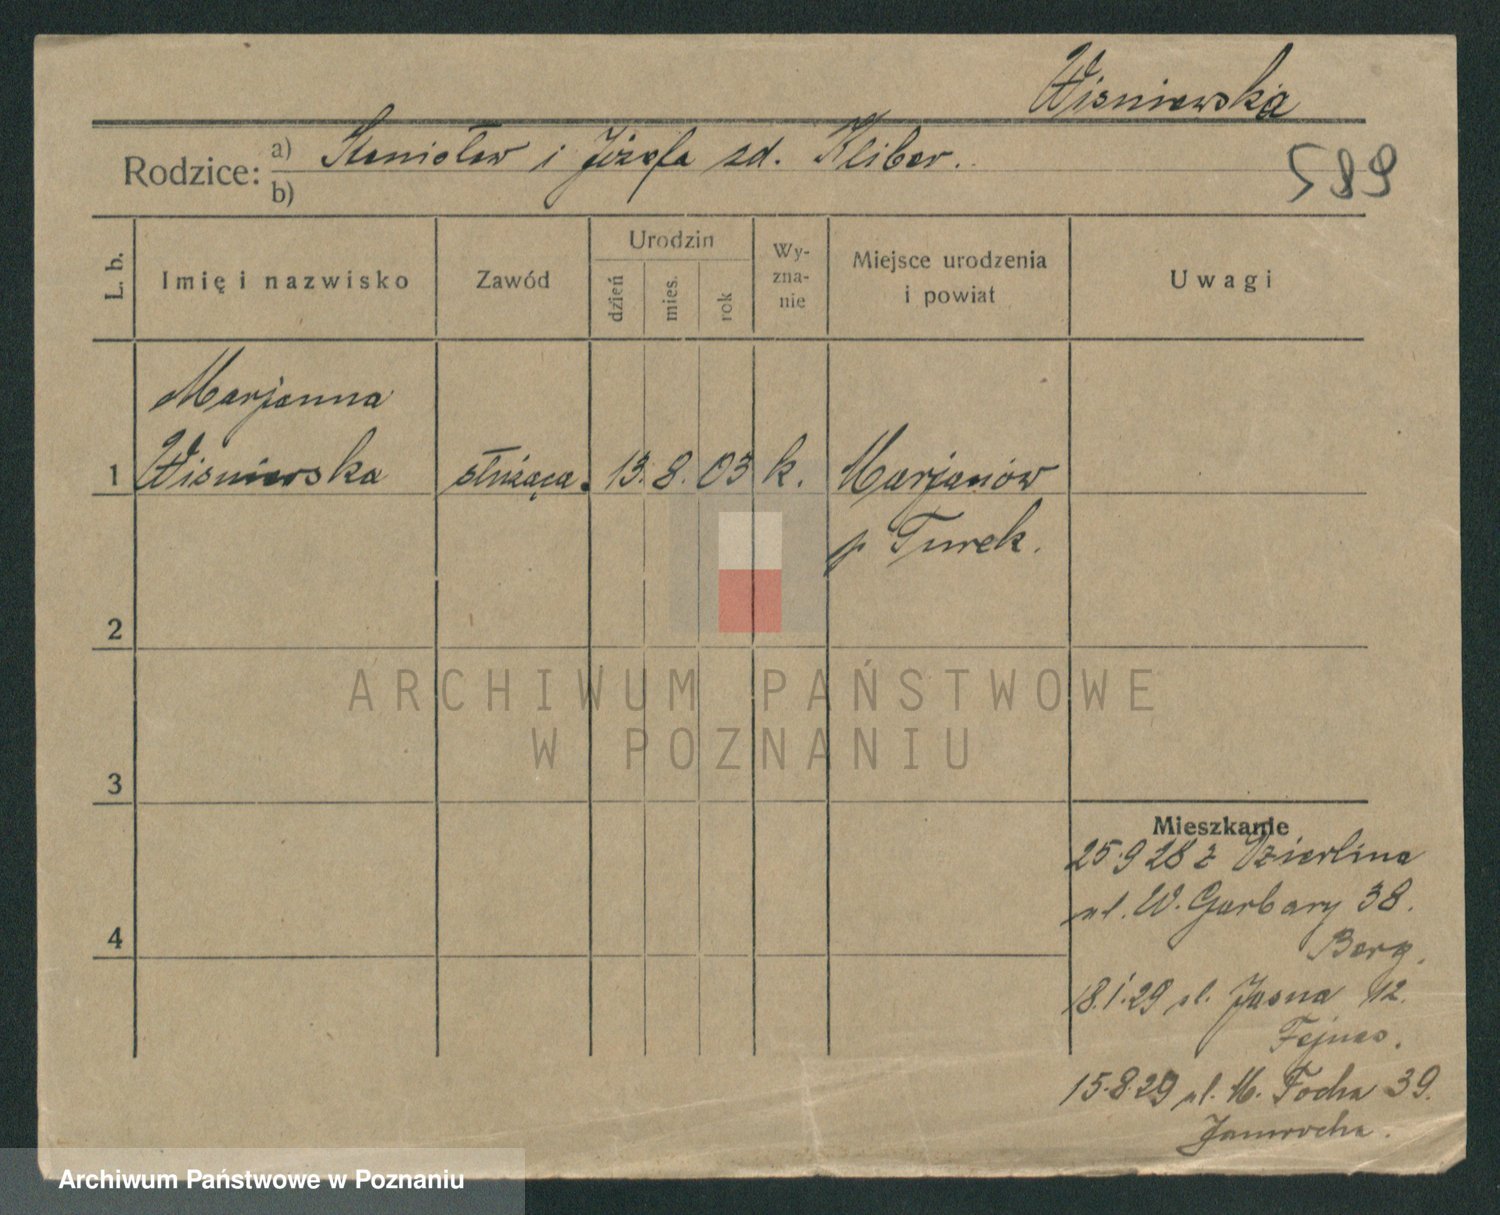 Wisniewska
Rodzice: a) Stanisław i Józefa zd. Kliber.
b)
589
L. b.
Imię i nazwisko
Zawód
Urodzin
dzień
mies.
rok
Wy-
zna-
nie
Miejsce urodzenia
i powiat
Uwagi
Marjanna
1 Wisniewska służąca. 13. 8. 03 k. Marjanów
p Turek.
2
ARCHIWUM PAŃSTWOWE
W POZNANIU
3
Mieszkanie
25.9 28 z Dzierlina
ul. W. Garbary 38.
4
Berg.
18.1.29 ul. Jasna 12.
15.8.29 ul. M. Focha 39.
Archiwum Państwowe w Poznaniu